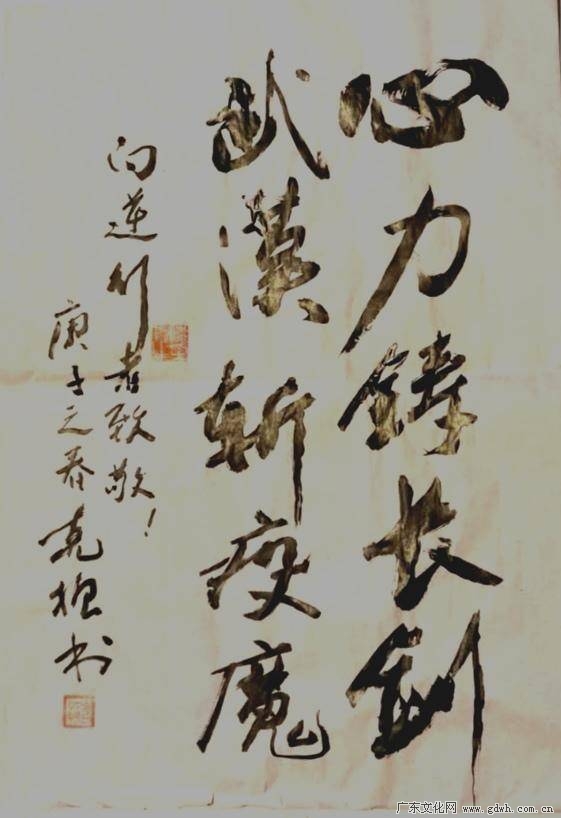 心力铸长剑
武汉斩疫魔
向逆行者致敬!
庚子之春克强书
广东文化网 www.gdwh.com.cn